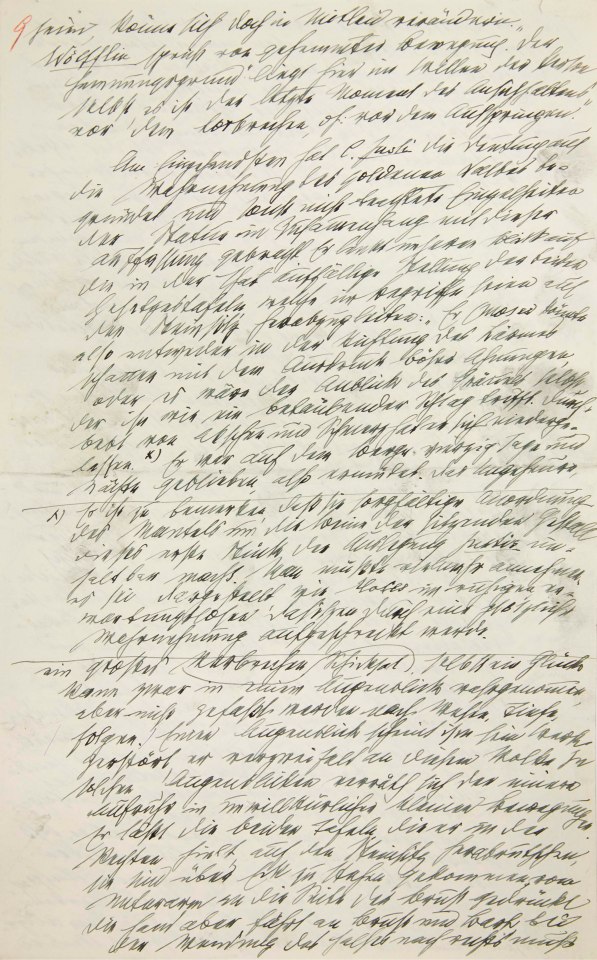 9 seien, könne sich doch in Mitleid verändern."
Wölfflin spricht von „gehemmter Bewegung". Der
Hemmungsgrund liegt hier im Willen der Person
selbst, es ist der letzte Moment des Ansichhaltens
vor dem Losbrechen, d. h. vor dem Aufspringen."
Am eingehendsten hat C. Justi die Deutung auf
die Wahrnehmung des Goldenen Kalbes be-
gründet und sonst nicht beachtete Einzelheiten
der Statue in Zusammenhang mit dieser
Auffassung gebracht. Er lenkt unseren Blick auf
die in der Tat auffällige Stellung der beiden
Gesetzestafeln, welche im Begriffe seien auf
den Steinsitz herabzugleiten: „Er (Moses) könnte
also entweder in der Richtung des Lärmes
schauen mit dem Ausdruck böser Ahnungen,
oder es wäre der Anblick des Gräuels selbst,
der ihn wie ein betäubender Schlag trifft. Durch-
bebt von Abscheu und Schmerz hat er sich niederge-
lassen. x) Er war auf dem Berge vierzig Tage und
Nächte geblieben, also ermüdet. Das Ungeheure,
x) Es ist zu bemerken, daß die sorgfältige Anordnung
des Mantels um die Beine der sitzenden Gestalt
dieses erste Stück der Auslegung Justis un-
haltbar macht. Man müßte vielmehr annehmen,
es sei dargestellt, wie Moses im ruhigen er-
wartungslosen Dasitzen durch eine plötzliche
Wahrnehmung aufgeschreckt werde.
ein großes Schicksal, Verbrechen, selbst ein Glück
kann zwar in einem Augenblick wahrgenommen,
aber nicht gefaßt werden nach Wesen, Tiefe,
Folgen. Einen Augenblick scheint ihm sein Werk
zerstört, er verzweifelt an diesem Volke. In
solchen Augenblicken verräth sich der innere
Aufruhr in unwillkürlichen kleinen Bewegungen.
Er läßt die beiden Tafeln, die er in der
Rechten hielt, auf den Steinsitz herabrutschen,
sie sind über Eck zu stehen gekommen, vom
Unterarm an die Seite der Brust gedrückt.
Die Hand aber fährt an Brust und Bart, bei
der Wendung des Halses nach rechts muß